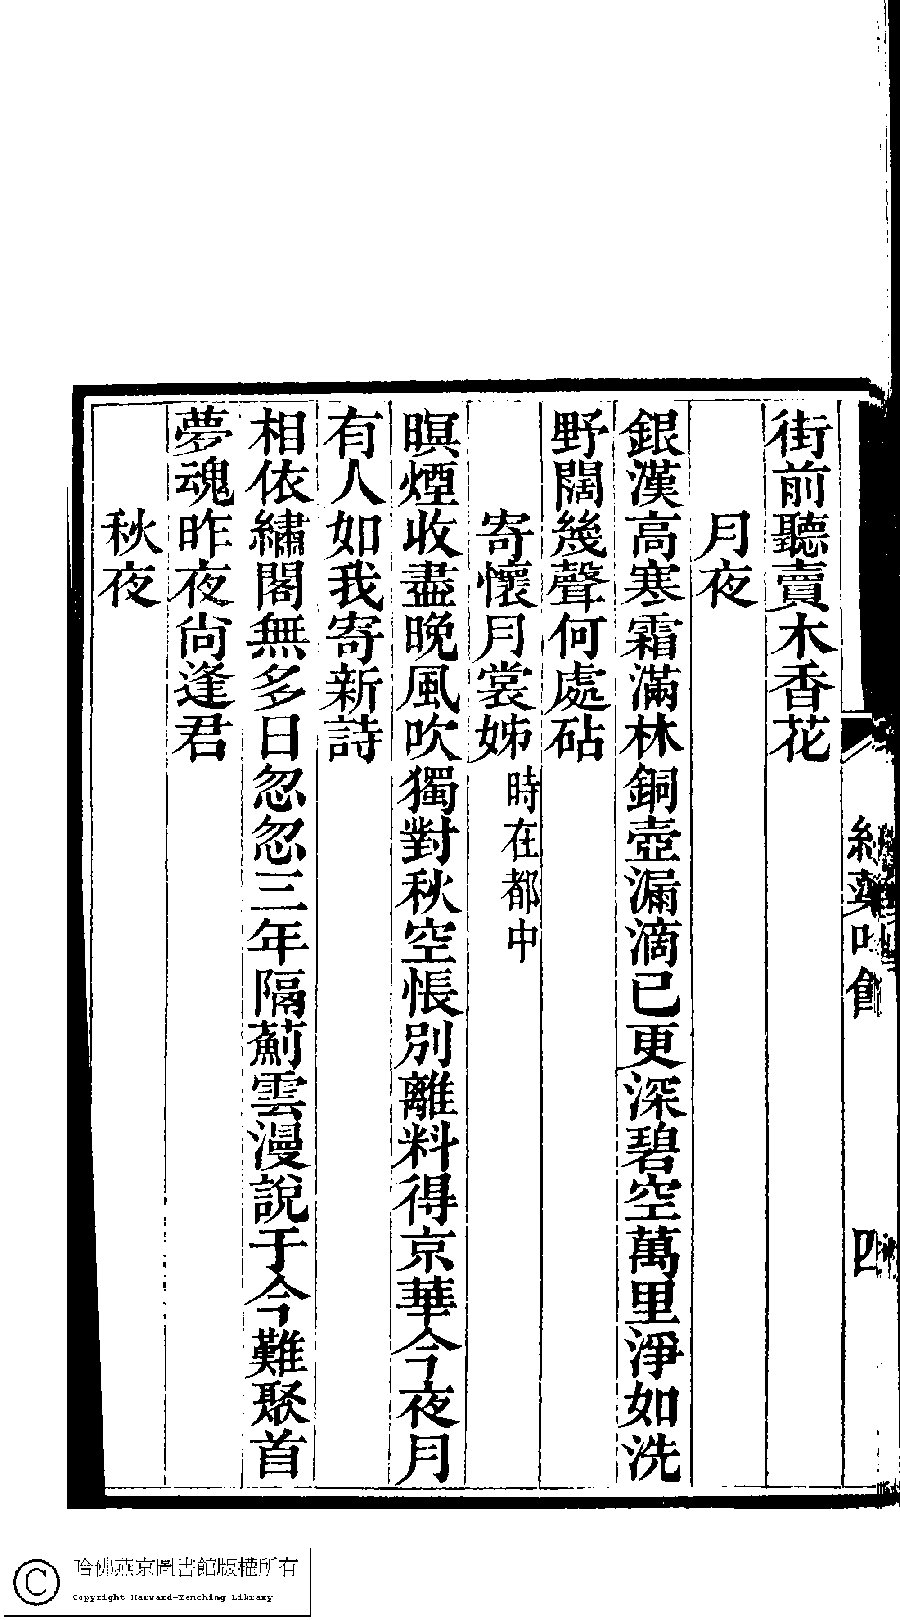 街前聽賣木香花
月夜
銀漢高寒霜滿林銅壺漏滴已更深碧空萬里淨如洗
野闊幾聲何處砧
寄懷月裳姊時在都中
暝煙收盡晚風吹獨對秋空悵別離料得京華今夜月
有人如我寄新詩
相依繡閣無多日忽忽三年隔薊雲漫說于今難聚首
夢魂昨夜尚逢君
秋夜
哈佛燕京圖書館版權所有
Copyright Harvard-Yenching Library